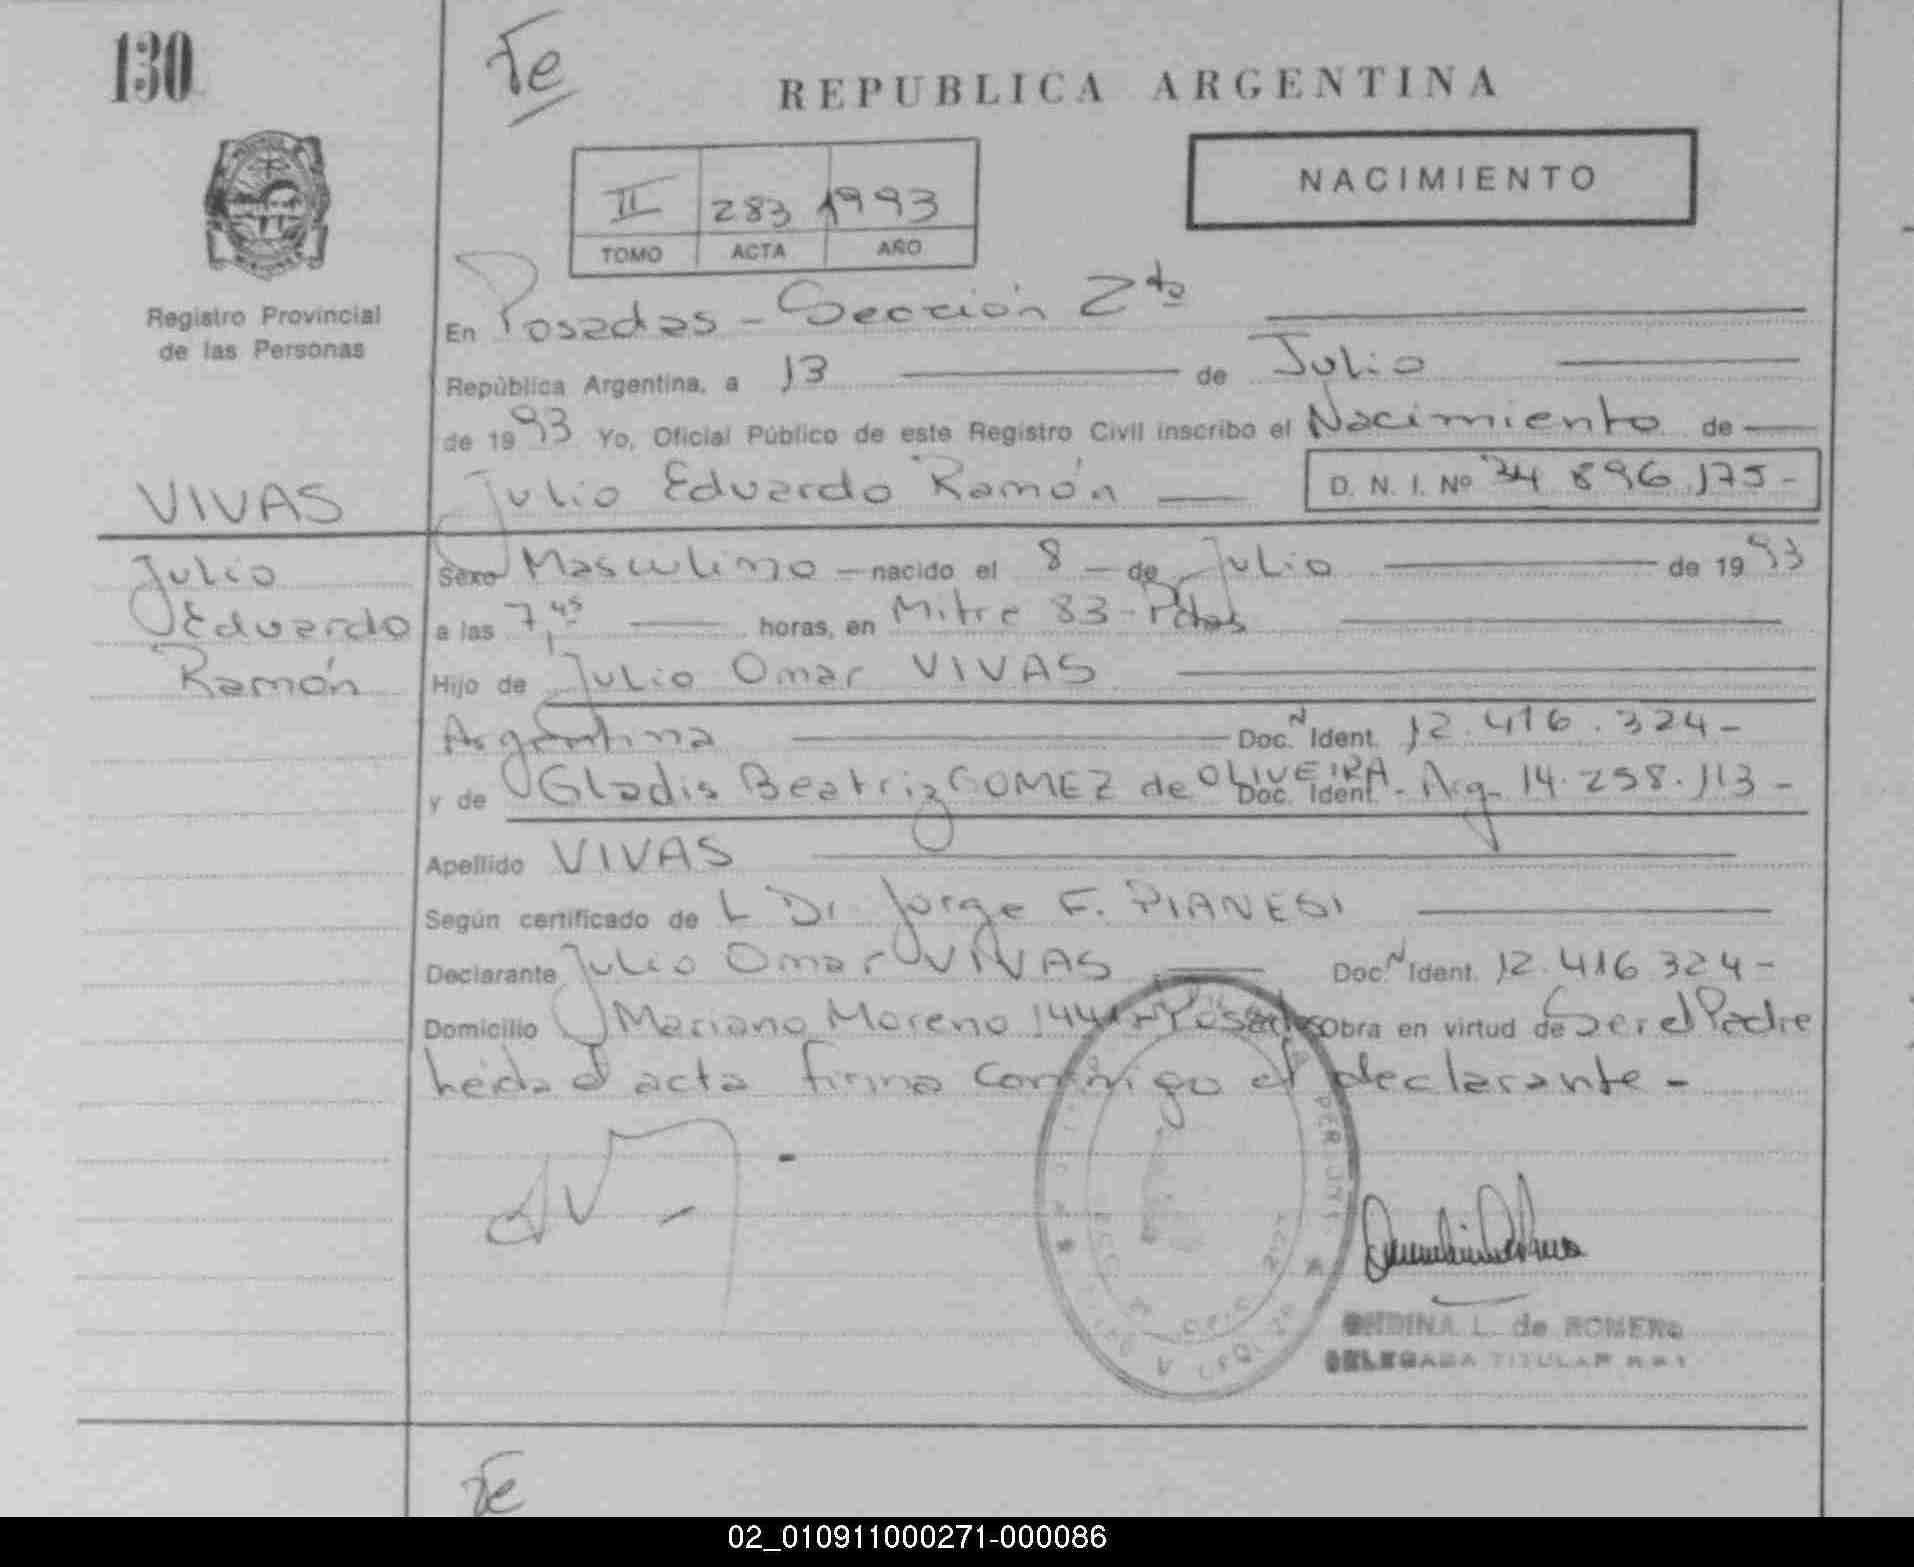 130
Te
REPUBLICA ARGENTINA
NACIMIENTO
II 283 1993
TOMO ACTA AÑO
Registro Provincial
de las Personas
En Posadas - Sección 2da
República Argentina, a 13 de Julio
de 1993 Yo, Oficial Público de este Registro Civil inscribo el Nacimiento de
VIVAS
Julio Eduardo Ramón D. N. I. Nº 34 896.175-
Julio
Eduardo
Ramón
Sexo Masculino - nacido el 8 - de Julio de 1993
a las 7,45 horas, en Mitre 83 - Pdas
Hijo de Julio Omar VIVAS
Argentina Doc. N Ident. 12.416.324-
y de Gladis Beatriz GOMEZ de OLIVEIRA - Arg- Doc. Ident. 14.258.113-
Apellido VIVAS
Según certificado de L Dr Jorge F. PIANESI
Declarante Julio Omar VIVAS Doc. N Ident. 12.416 324-
Domicilio Mariano Moreno Posadas Obra en virtud de Ser el Padre
Leída el acta firma conmigo el declarante -
ONDINA L. de ROMERO
DELEGADA TITULAR
Te
02_010911000271-000086